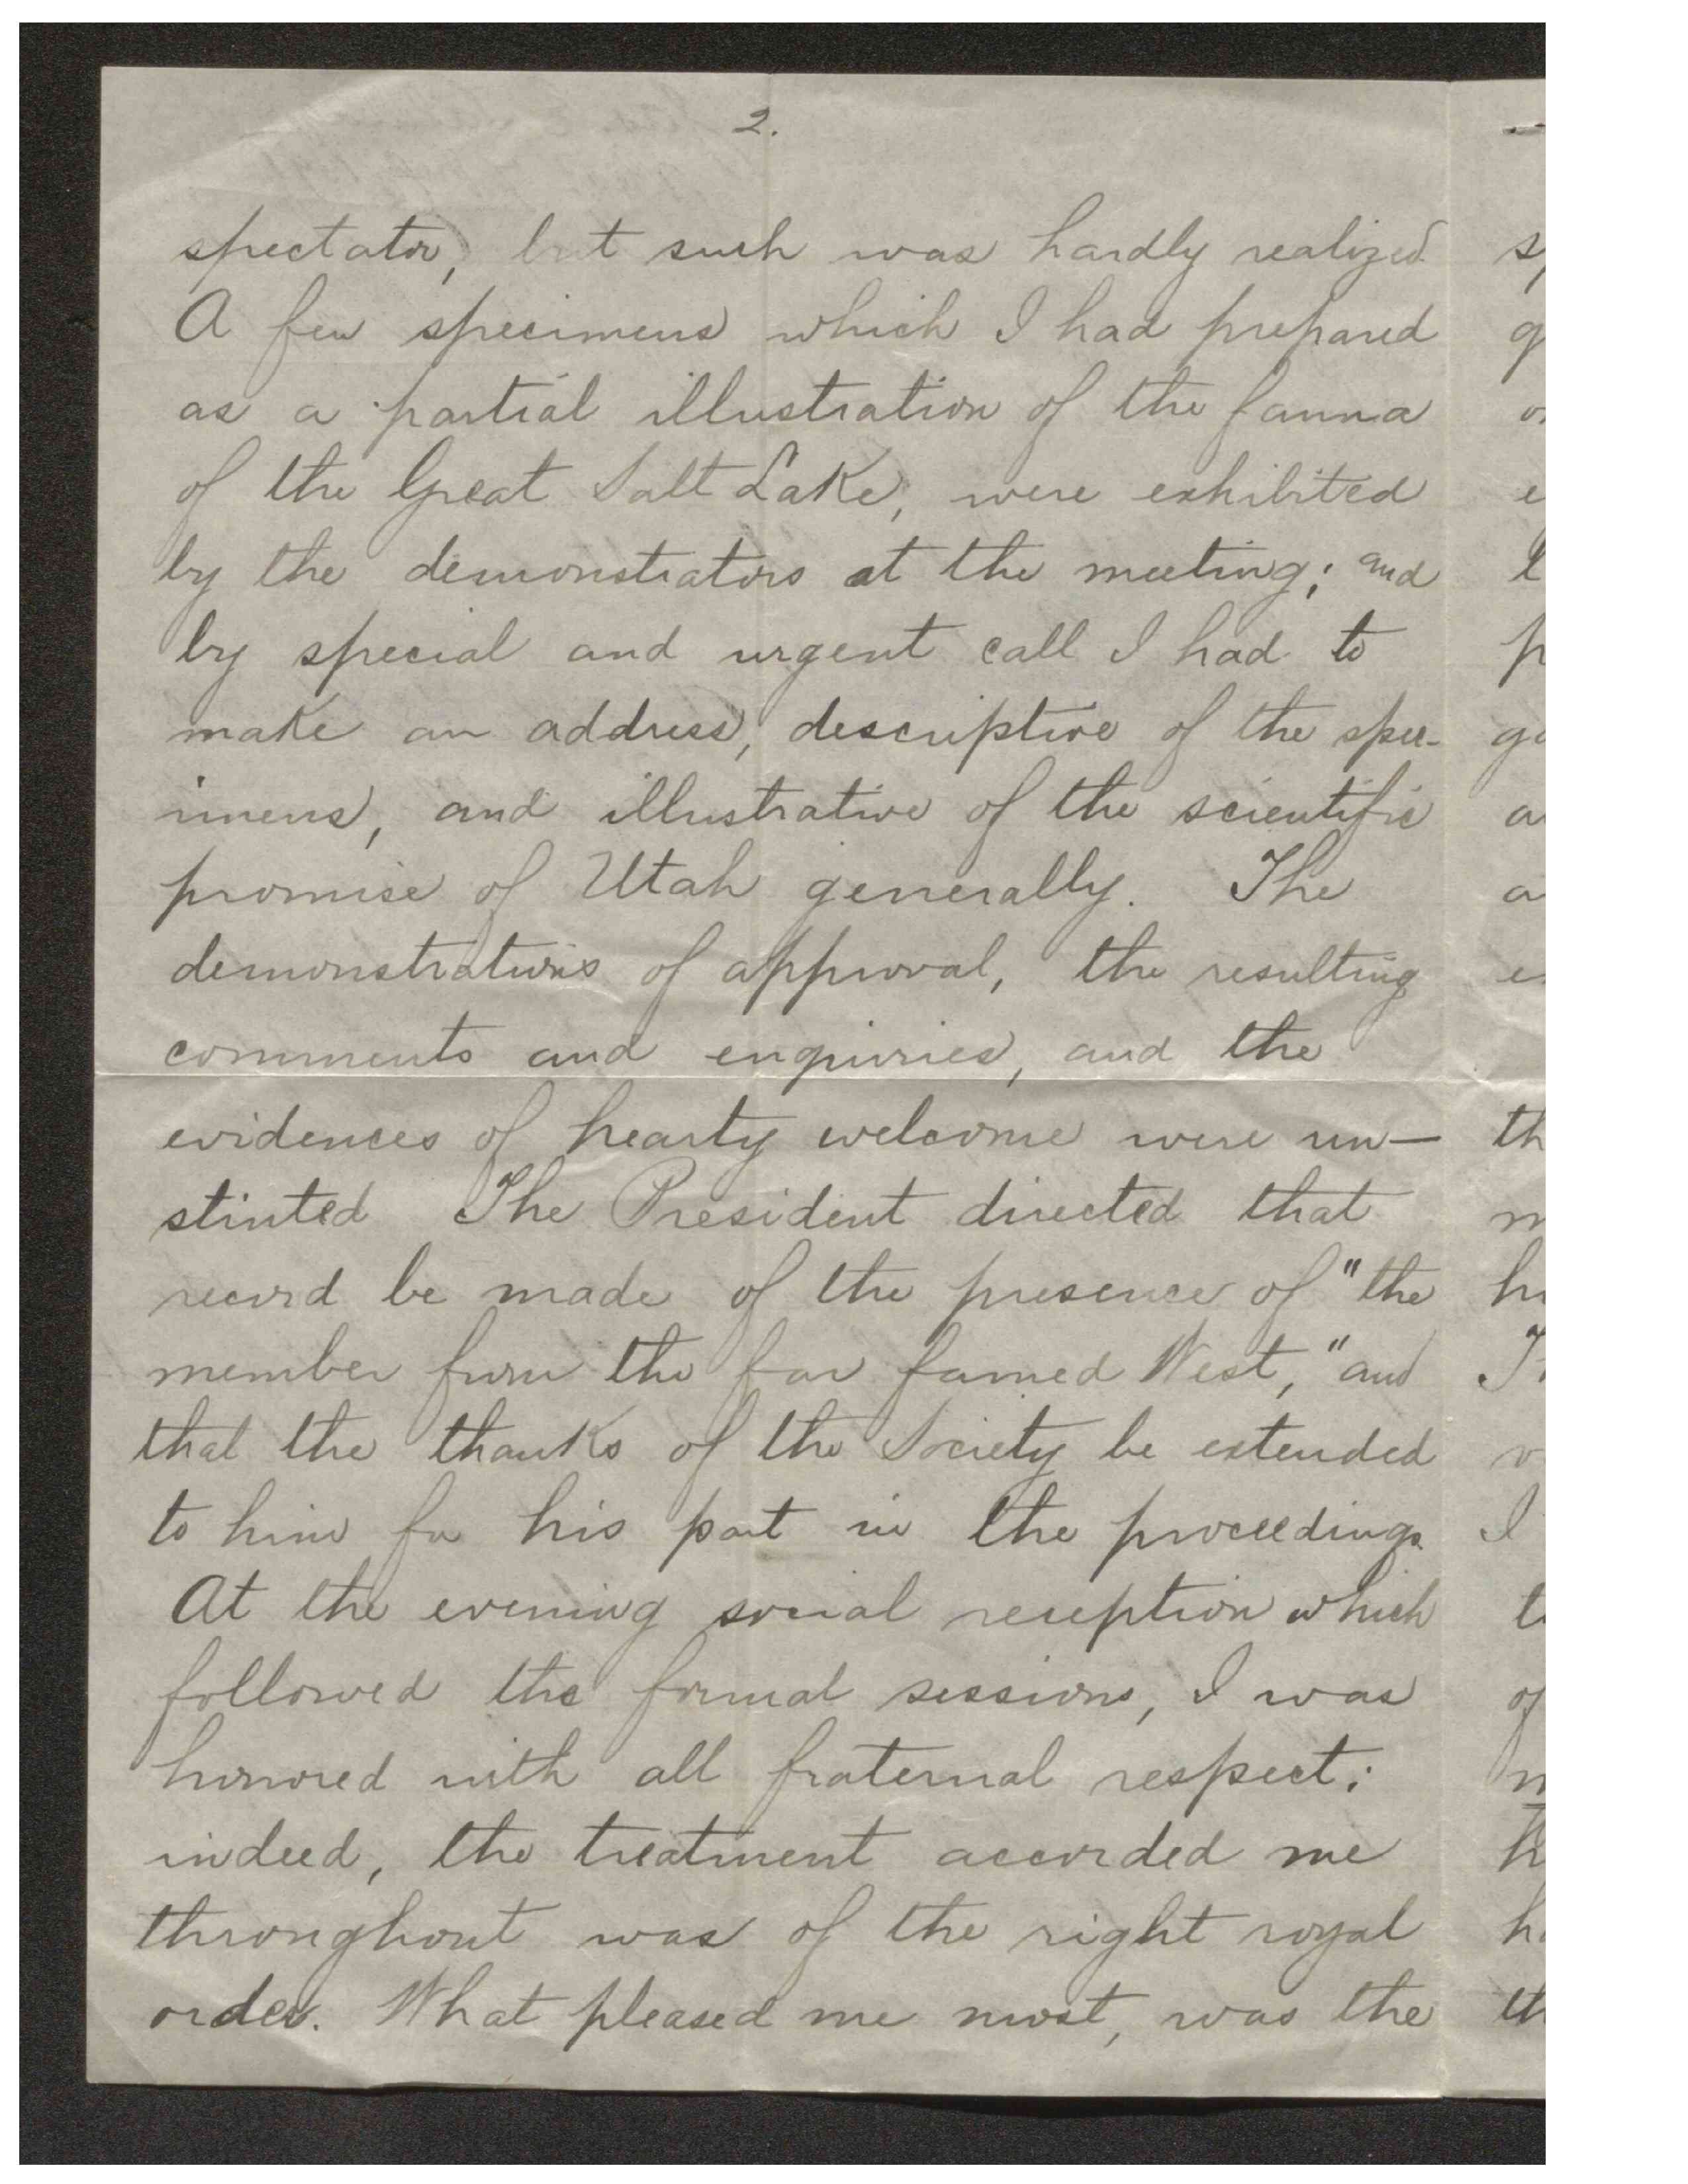 2.
spectator, but such was hardly realized.
A few specimens which I had prepared
as a partial illustration of the fauna
of the Great Salt Lake, were exhibited
by the demonstrators at the meeting; and
by special and urgent call I had to
make an address, descriptive of the spec-
imens, and illustrative of the scientific
promise of Utah generally. The
demonstrations of approval, the resulting
comments and enquiries, and the
evidences of hearty welcome were un-
stinted The President directed that
record be made of the presence of "the
member from the far famed West," and
that the thanks of the Society be extended
to him for his part in the proceedings.
At the evening social reception which
followed the formal sessions, I was
honored with all fraternal respect;
indeed, the treatment accorded me
throughout was of the right royal
order. What pleased me most, was the